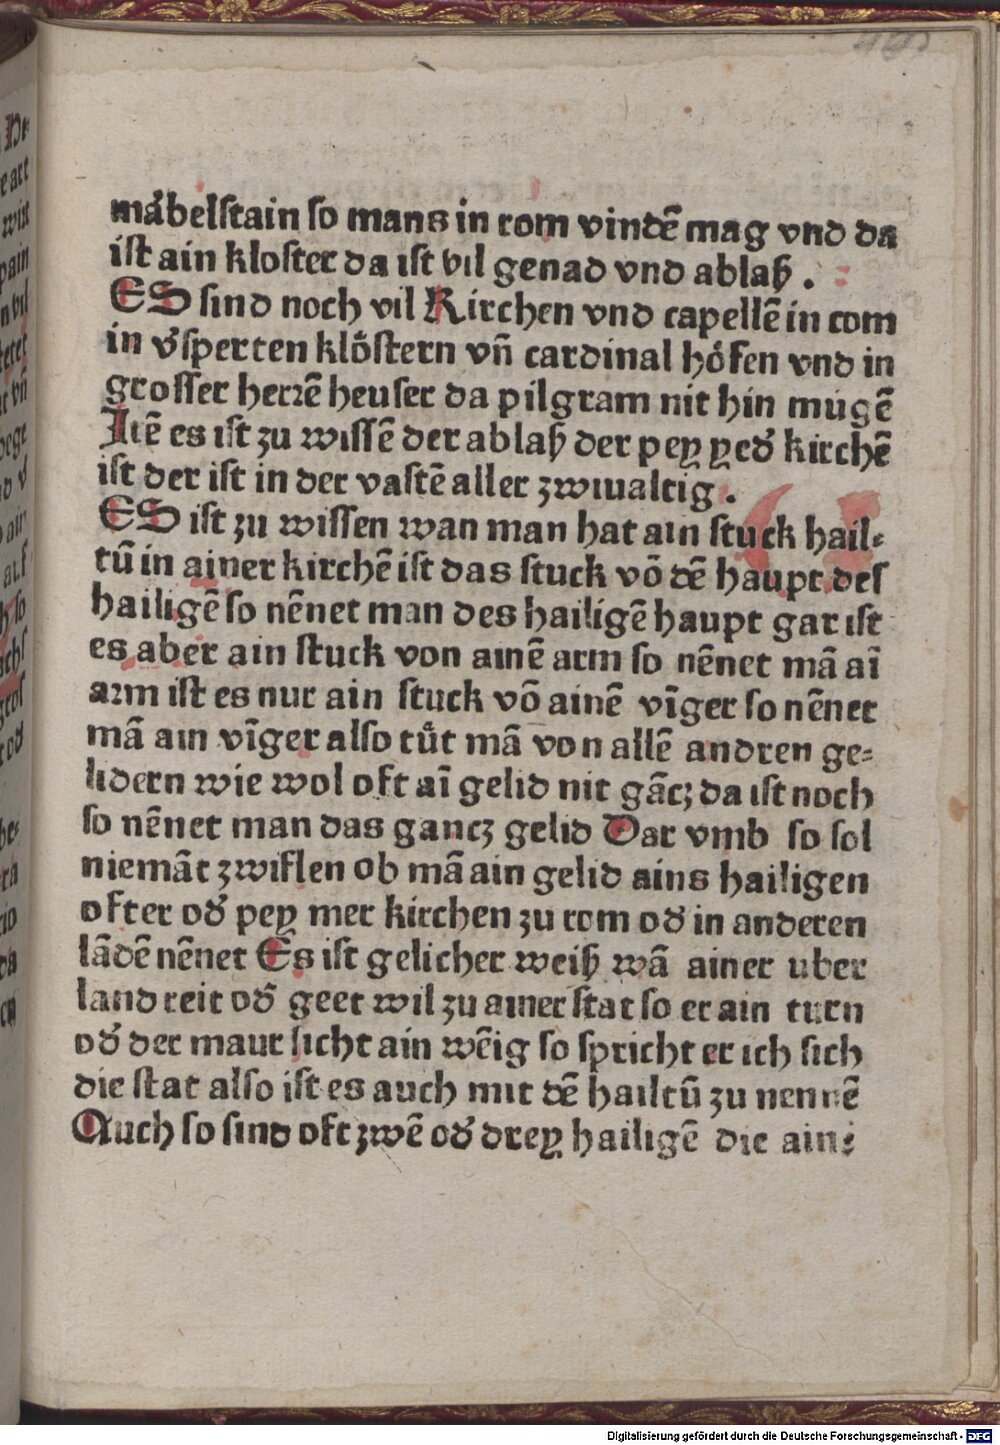 mäbelstain so mans in rom vindē mag vnd da
ist ain kloster da ist vil genad vnd ablaß .
ES sind noch vil Kirchen vnd capellē in rom
in v̓sperten klöstern vn̄ cardinal höfen vnd in
grosser herrē heuser da pilgram nit hin mugē
Itē es ist zu wissē der ablaß der pey yed̓ kirchē
ist der ist in der vastē aller zwiualtig .
ES ist zu wissen wan man hat ain stuck hail⸗
tū in ainer kirchē ist das stuck vō dē haupt des
hailigē so nēnet man des hailigē haupt gar ist
es aber ain stuck von ainē arm so nēnet mā aī
arm ist es nur ain stuck vō ainē vīger so nēnet
mā ain vīger also tüt mā von allē andren ge⸗
lidern wie wol oft aī gelid nit gācz da ist noch
so nēnet man das gancz gelid Dar vmb so sol
niemāt zwiflen ob mā ain gelid ains hailigen
ofter od̓ pey mer kirchen zu rom od̓ in anderen
lādē nēnet Es ist gelicher weiß wā ainer uber
land reit od̓ geet wil zu ainer stat so er ain turn
od̓ der maur sicht ain wēig so spricht er ich sich
die stat also ist es auch mit dē hailtū zu nennē
Auch so sind oft zwē od̓ drey hailigē die ain⸗
Digitalisierung gefördert durch die Deutsche Forschungsgemeinschaft - DFG